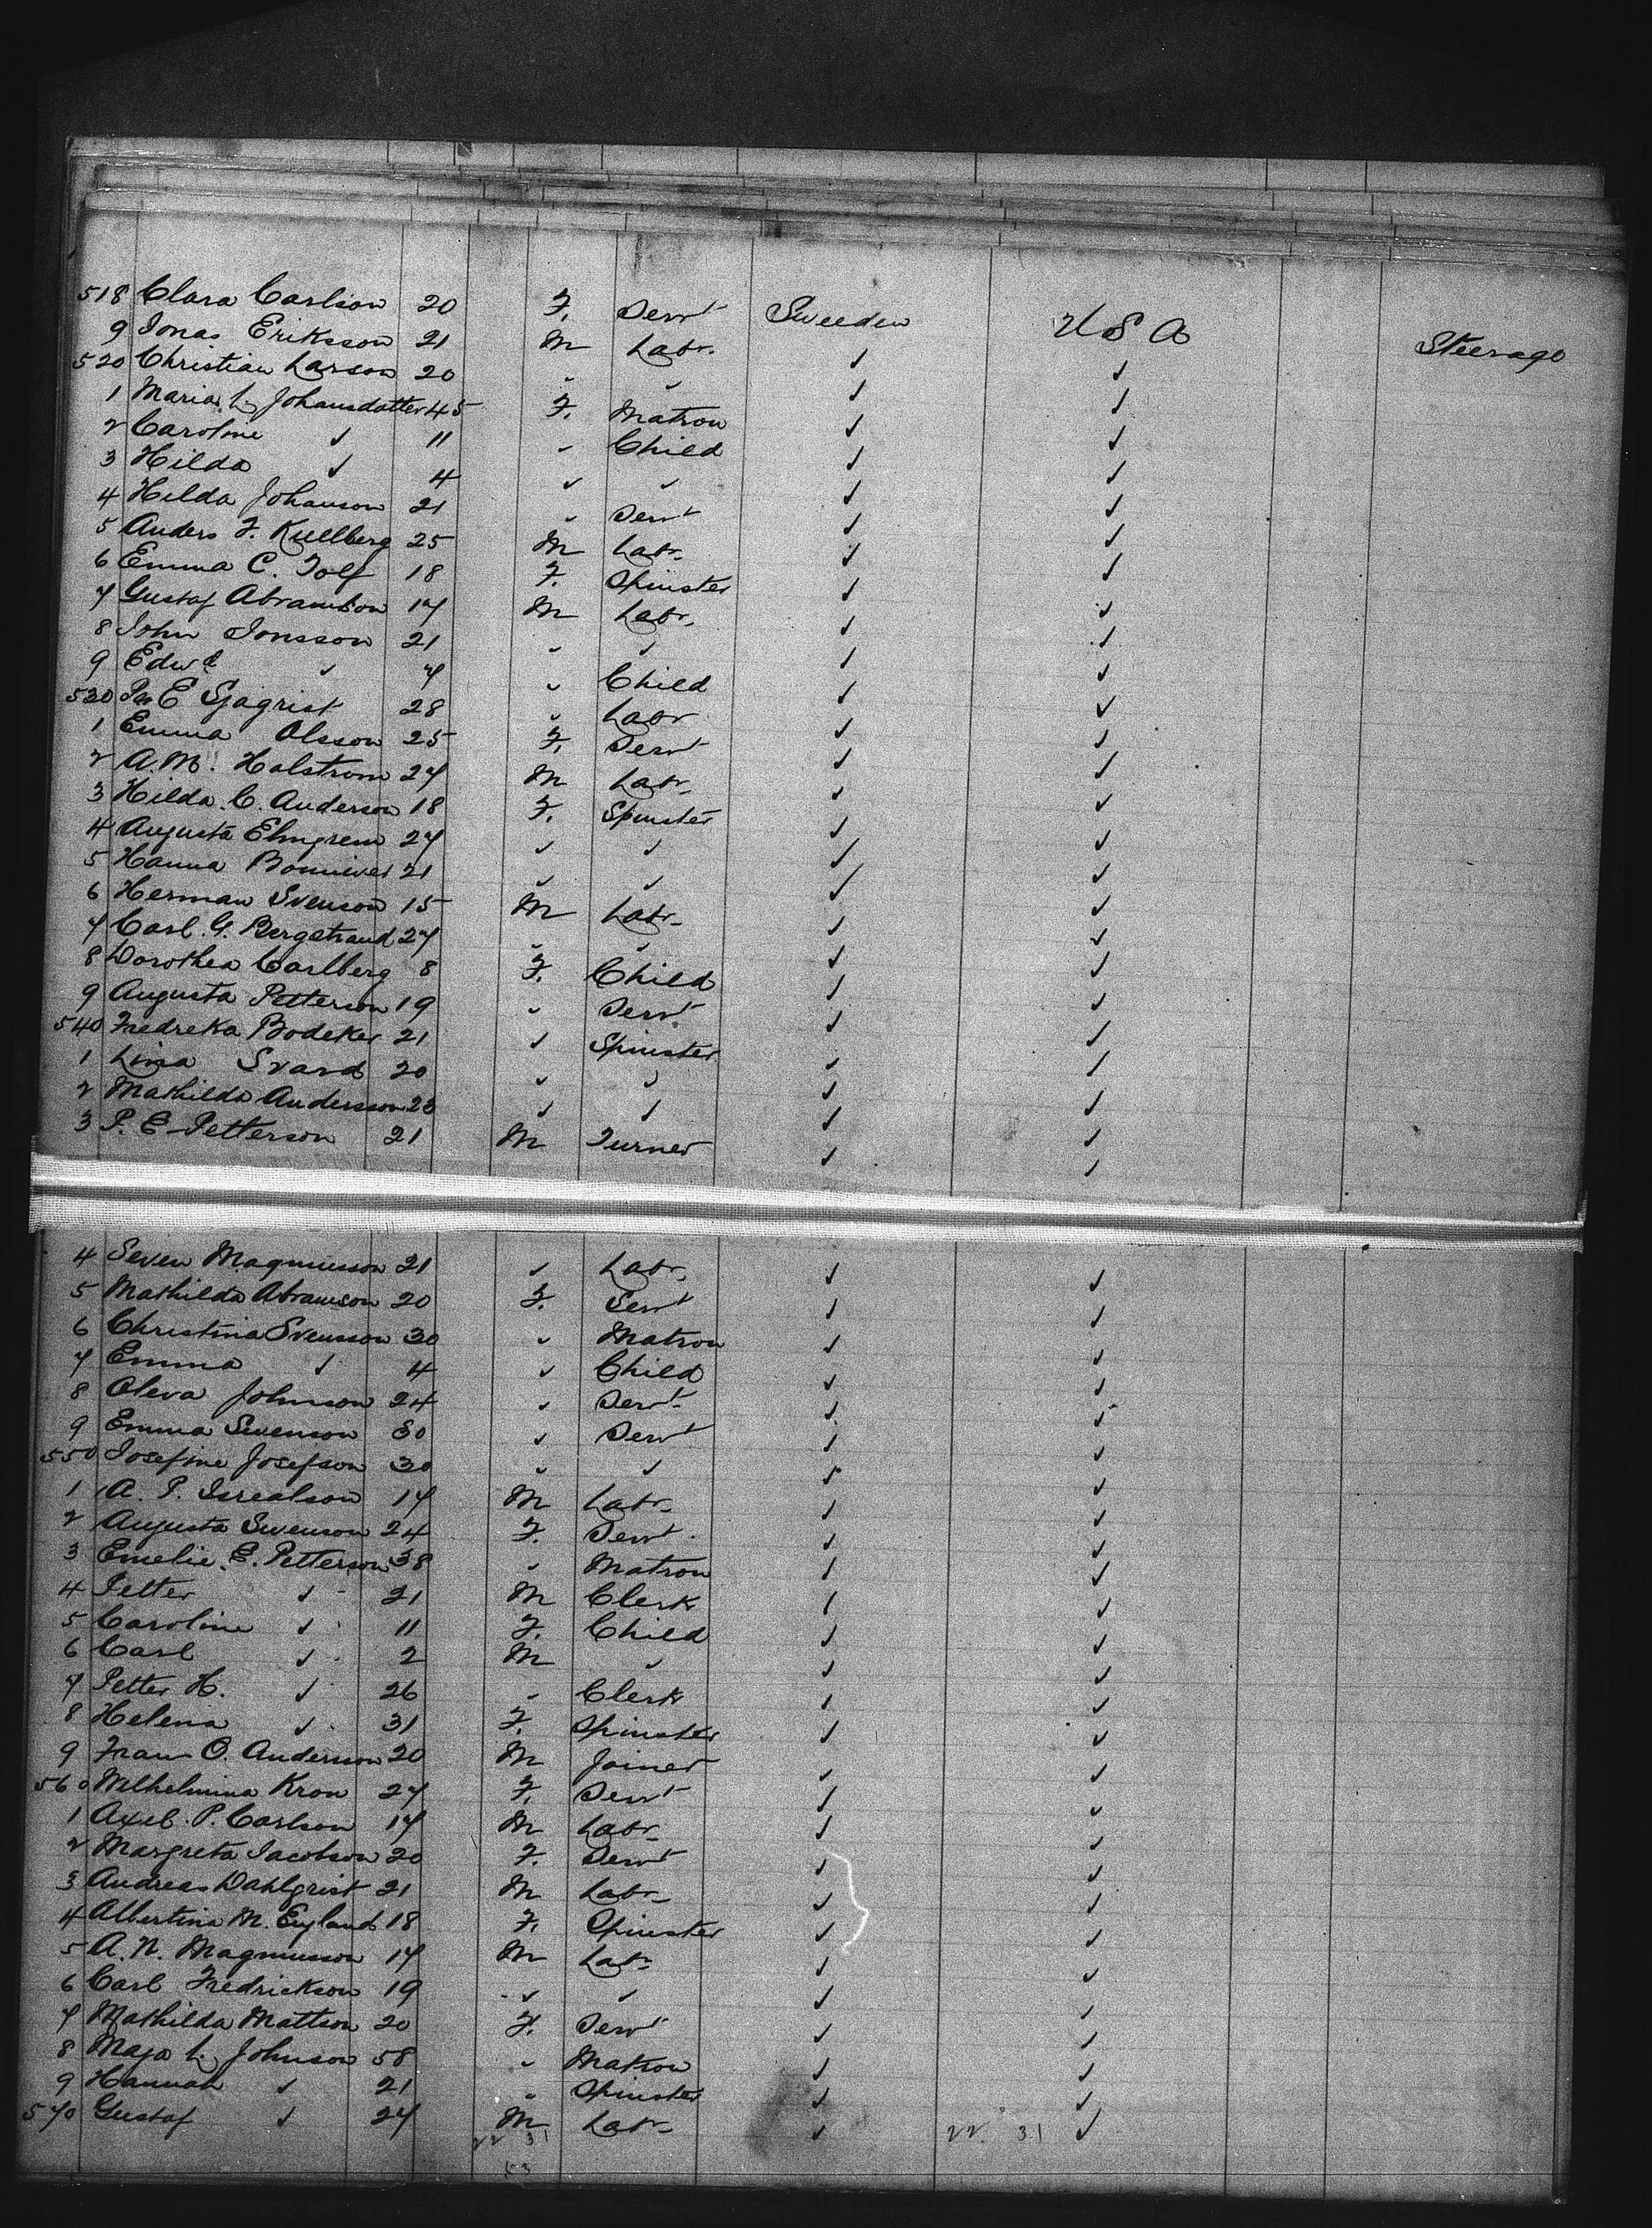 518 Clara Carlson 20 F. Servt Sweeden U S A Steerage
9 Jonas Eriksson 21 M Labr. ✓ ✓
520 Christian Larson 20 " " ✓ ✓
1 Maria L Johansdotter 45 F. Matron ✓ ✓
2 Caroline ✓ 11 " Child ✓ ✓
3 Hilda ✓ 4 ✓ ✓ ✓ ✓
4 Hilda Johanson 21 " Servt ✓ ✓
5 Anders F. Kullberg 25 M Labr. ✓ ✓
6 Emma C. Tolf 18 F. Spinster ✓ ✓
7 Gustaf Abramson 17 M Labr. ✓ ✓
8 John Jonsson 21 " ✓ ✓ ✓
9 Edwd ✓ 7 " Child ✓ ✓
530 E Sjogrist 28 " Labr ✓ ✓
1 Emma Olsson 25 F. Servt ✓ ✓
2 A. M. Holstrom 27 M Labr. ✓ ✓
3 Hilda C. Anderson 18 F. Spinster ✓ ✓
4 Augusta Elmgrem 27 ✓ ✓ ✓ ✓
5 Hanna 21 ✓ ✓ ✓ ✓
6 Herman Svenson 15 M Labr. ✓ ✓
7 Carl. G. Bergstrand 27 " ✓ ✓ ✓
8 Dorothea Carlberg 8 F. Child ✓ ✓
9 Augusta Petterson 19 " Servt ✓ ✓
540 Fredreka Bodeker 21 ✓ Spinster ✓ ✓
1 Lina Svard 20 ✓ ✓ ✓ ✓
2 Mathilda Andersson 23 ✓ ✓ ✓ ✓
3 P. E Petterson 21 M Turner ✓ ✓
4 Seven Magnusson 21 ✓ Labr. ✓ ✓
5 Mathilda Abramson 20 F. Servt ✓ ✓
6 Christina Svensson 30 " Matron ✓ ✓
7 Emma ✓ 4 ✓ Child ✓ ✓
8 Oleva Johnson 24 ✓ Servt ✓ ✓
9 Emma Svenson 30 ✓ Servt ✓ ✓
550 Josefine Josefson 30 " ✓ ✓ ✓
1 A. P. Isrealson 17 M Labr. ✓ ✓
2 Augusta Swenson 24 F. Servt ✓ ✓
3 Emelie. E. Petterson 38 " Matron ✓ ✓
4 Petter ✓ 21 M Clerk ✓ ✓
5 Caroline ✓ 11 F. Child ✓ ✓
6 Carl ✓ 2 M ✓ ✓ ✓
7 Petter H. ✓ 26 " Clerk ✓ ✓
8 Helena ✓ 31 F. Spinster ✓ ✓
9 Frans O. Andersson 20 M Joiner ✓ ✓
560 Wilhelmina Kron 27 F. Servt ✓ ✓
1 Axel. P. Carlson 17 M Labr. ✓ ✓
2 Margreta Jacobson 20 F. Servt ✓ ✓
3 Andreas Dahlgrist 21 M Labr. ✓ ✓
4 Albertina M. England 18 F. Spinster ✓ ✓
5 A. N. Magnusson 17 M Labr ✓ ✓
6 Carl Fredrickson 19 ✓ ✓ ✓ ✓
7 Mathilda Mattson 20 F. Servt ✓ ✓
8 Maja L. Johnson 58 " Matron ✓ ✓
9 Hannah ✓ 21 " Spinster ✓ ✓
570 Gustaf ✓ 27 M Labr. ✓ ✓
22 31 22 31
53